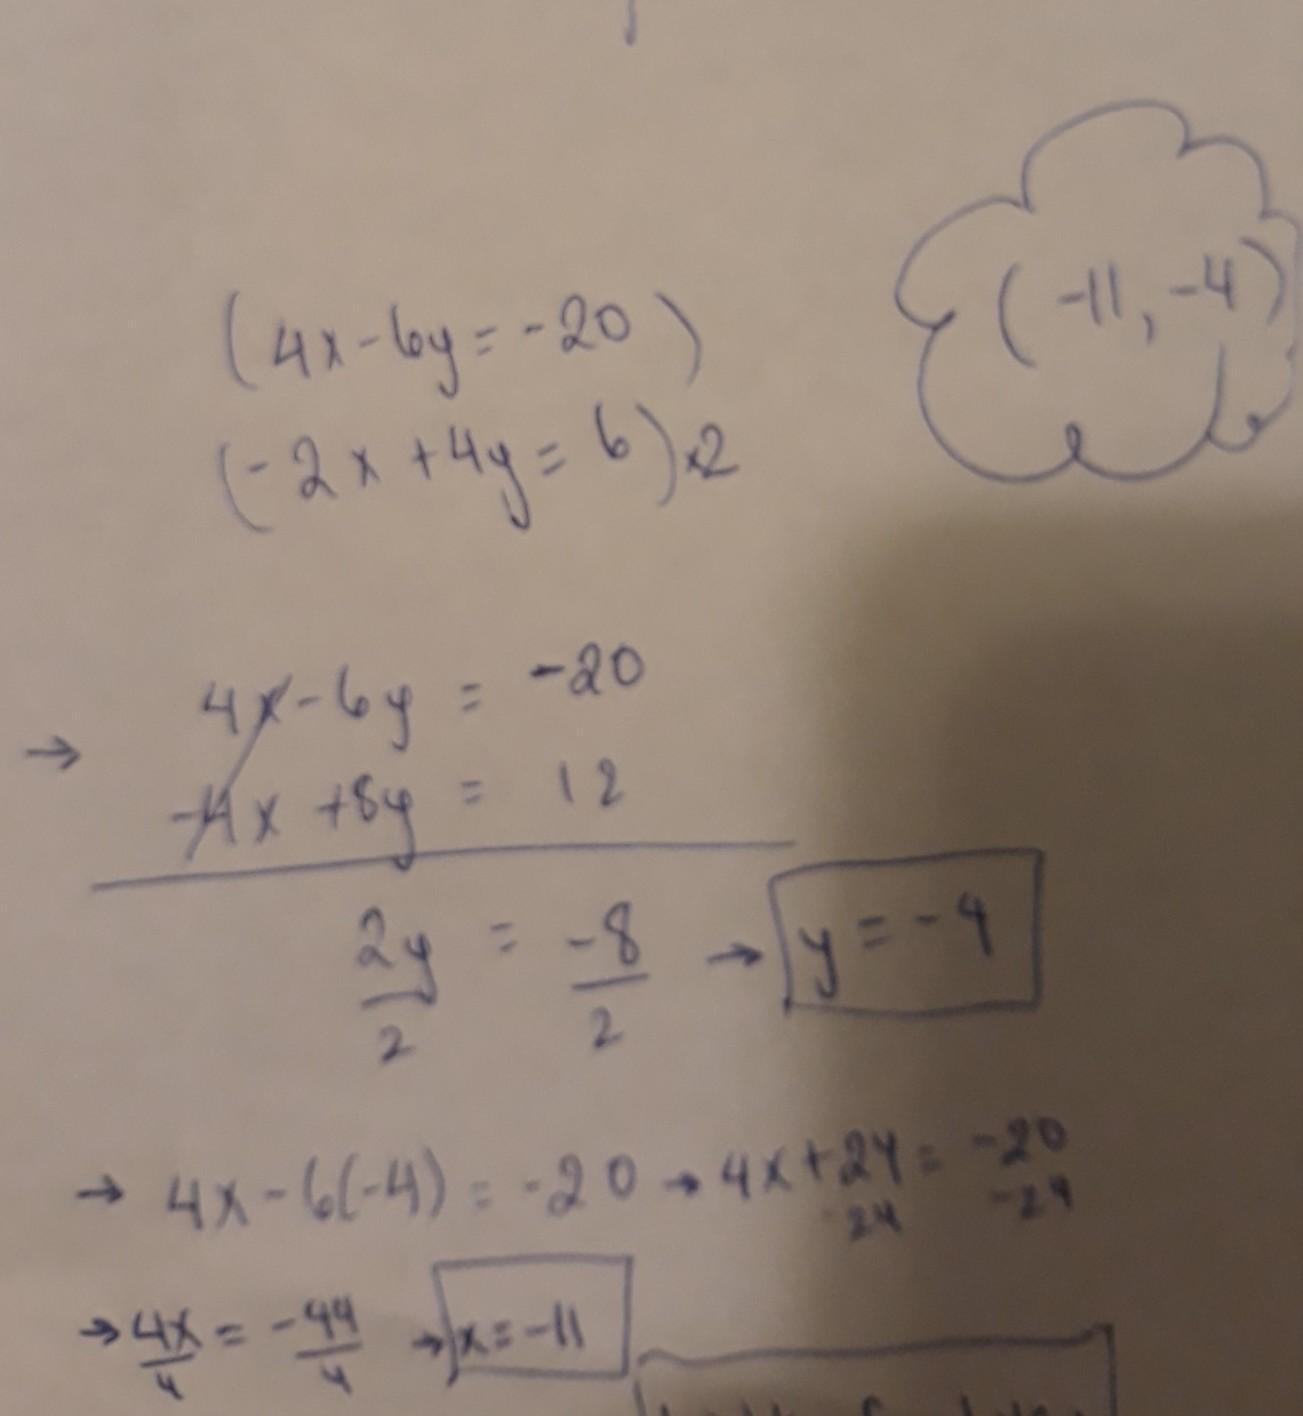 (-11, -4)
(4x-6y=-20)
(-2x+4y=6)×2
→ 4x-6y = -20
-4x+8y = 12
2y/2 = -8/2 → y=-4
→ 4x-6(-4)=-20 → 4x+24=-20
-24 -24
→ 4x/4 = -44/4 → x=-11